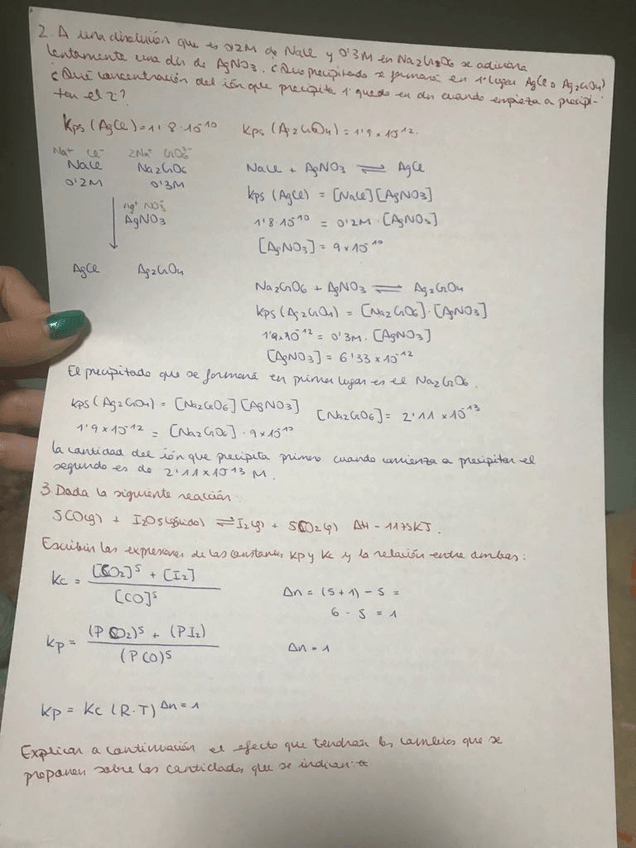 2. A una disolución que es 0'2M de NaCl y 0'3M en Na2CrO6 se adiciona
lentamente una dis de AgNO3. ¿Que precipitado se formará en 1º lugar AgCl o Ag2CrO4?
¿Qué concentración del ión que precipita 1º quede en dis cuando empieza a precipi-
ten el 2?
Kps (AgCl) = 1'8·10^-10 Kps (Ag2CrO4) = 1'9×10^-12.
Na+ Cl- 2Na+ CrO6
NaCl Na2CrO6
0'2M 0'3M
Ag+ NO3-
AgNO3
AgCl Ag2CrO4
NaCl + AgNO3 ⇌ AgCl
Kps (AgCl) = [NaCl][AgNO3]
1'8·10^-10 = 0'2M · [AgNO3]
[AgNO3] = 9×10^-10
Na2CrO6 + AgNO3 ⇌ Ag2CrO4
Kps (Ag2CrO4) = [Na2CrO6]·[AgNO3]
1'9×10^-12 = 0'3M · [AgNO3]
[AgNO3] = 6'33×10^-12
El precipitado que se formará en primer lugar es el Na2CrO6.
Kps (Ag2CrO4) = [Na2CrO6][AgNO3] [Na2CrO6] = 2'11×10^-13
1'9×10^-12 = [Na2CrO6] · 9×10^-10
la cantidad del ión que precipita primero cuando comienza a precipitar el
segundo es de 2'11×10^-13 M.
3. Dada la siguiente reacción
5CO(g) + I2O5(sólido) ⇌ I2(g) + 5CO2(g) ΔH - 1175KJ.
Escribir las expresiones de las constantes Kp y Kc y la relación entre ambas:
Kc = [CO2]^5 + [I2] / [CO]^5
Δn = (5+1) - 5 =
6 - 5 = 1
Kp = (P CO2)^5 + (P I2) / (P CO)^5
Δn = 1
Kp = Kc (R·T)^Δn = 1
Explicar a continuación el efecto que tendrán los cambios que se
proponen sobre las cantidades que se indican